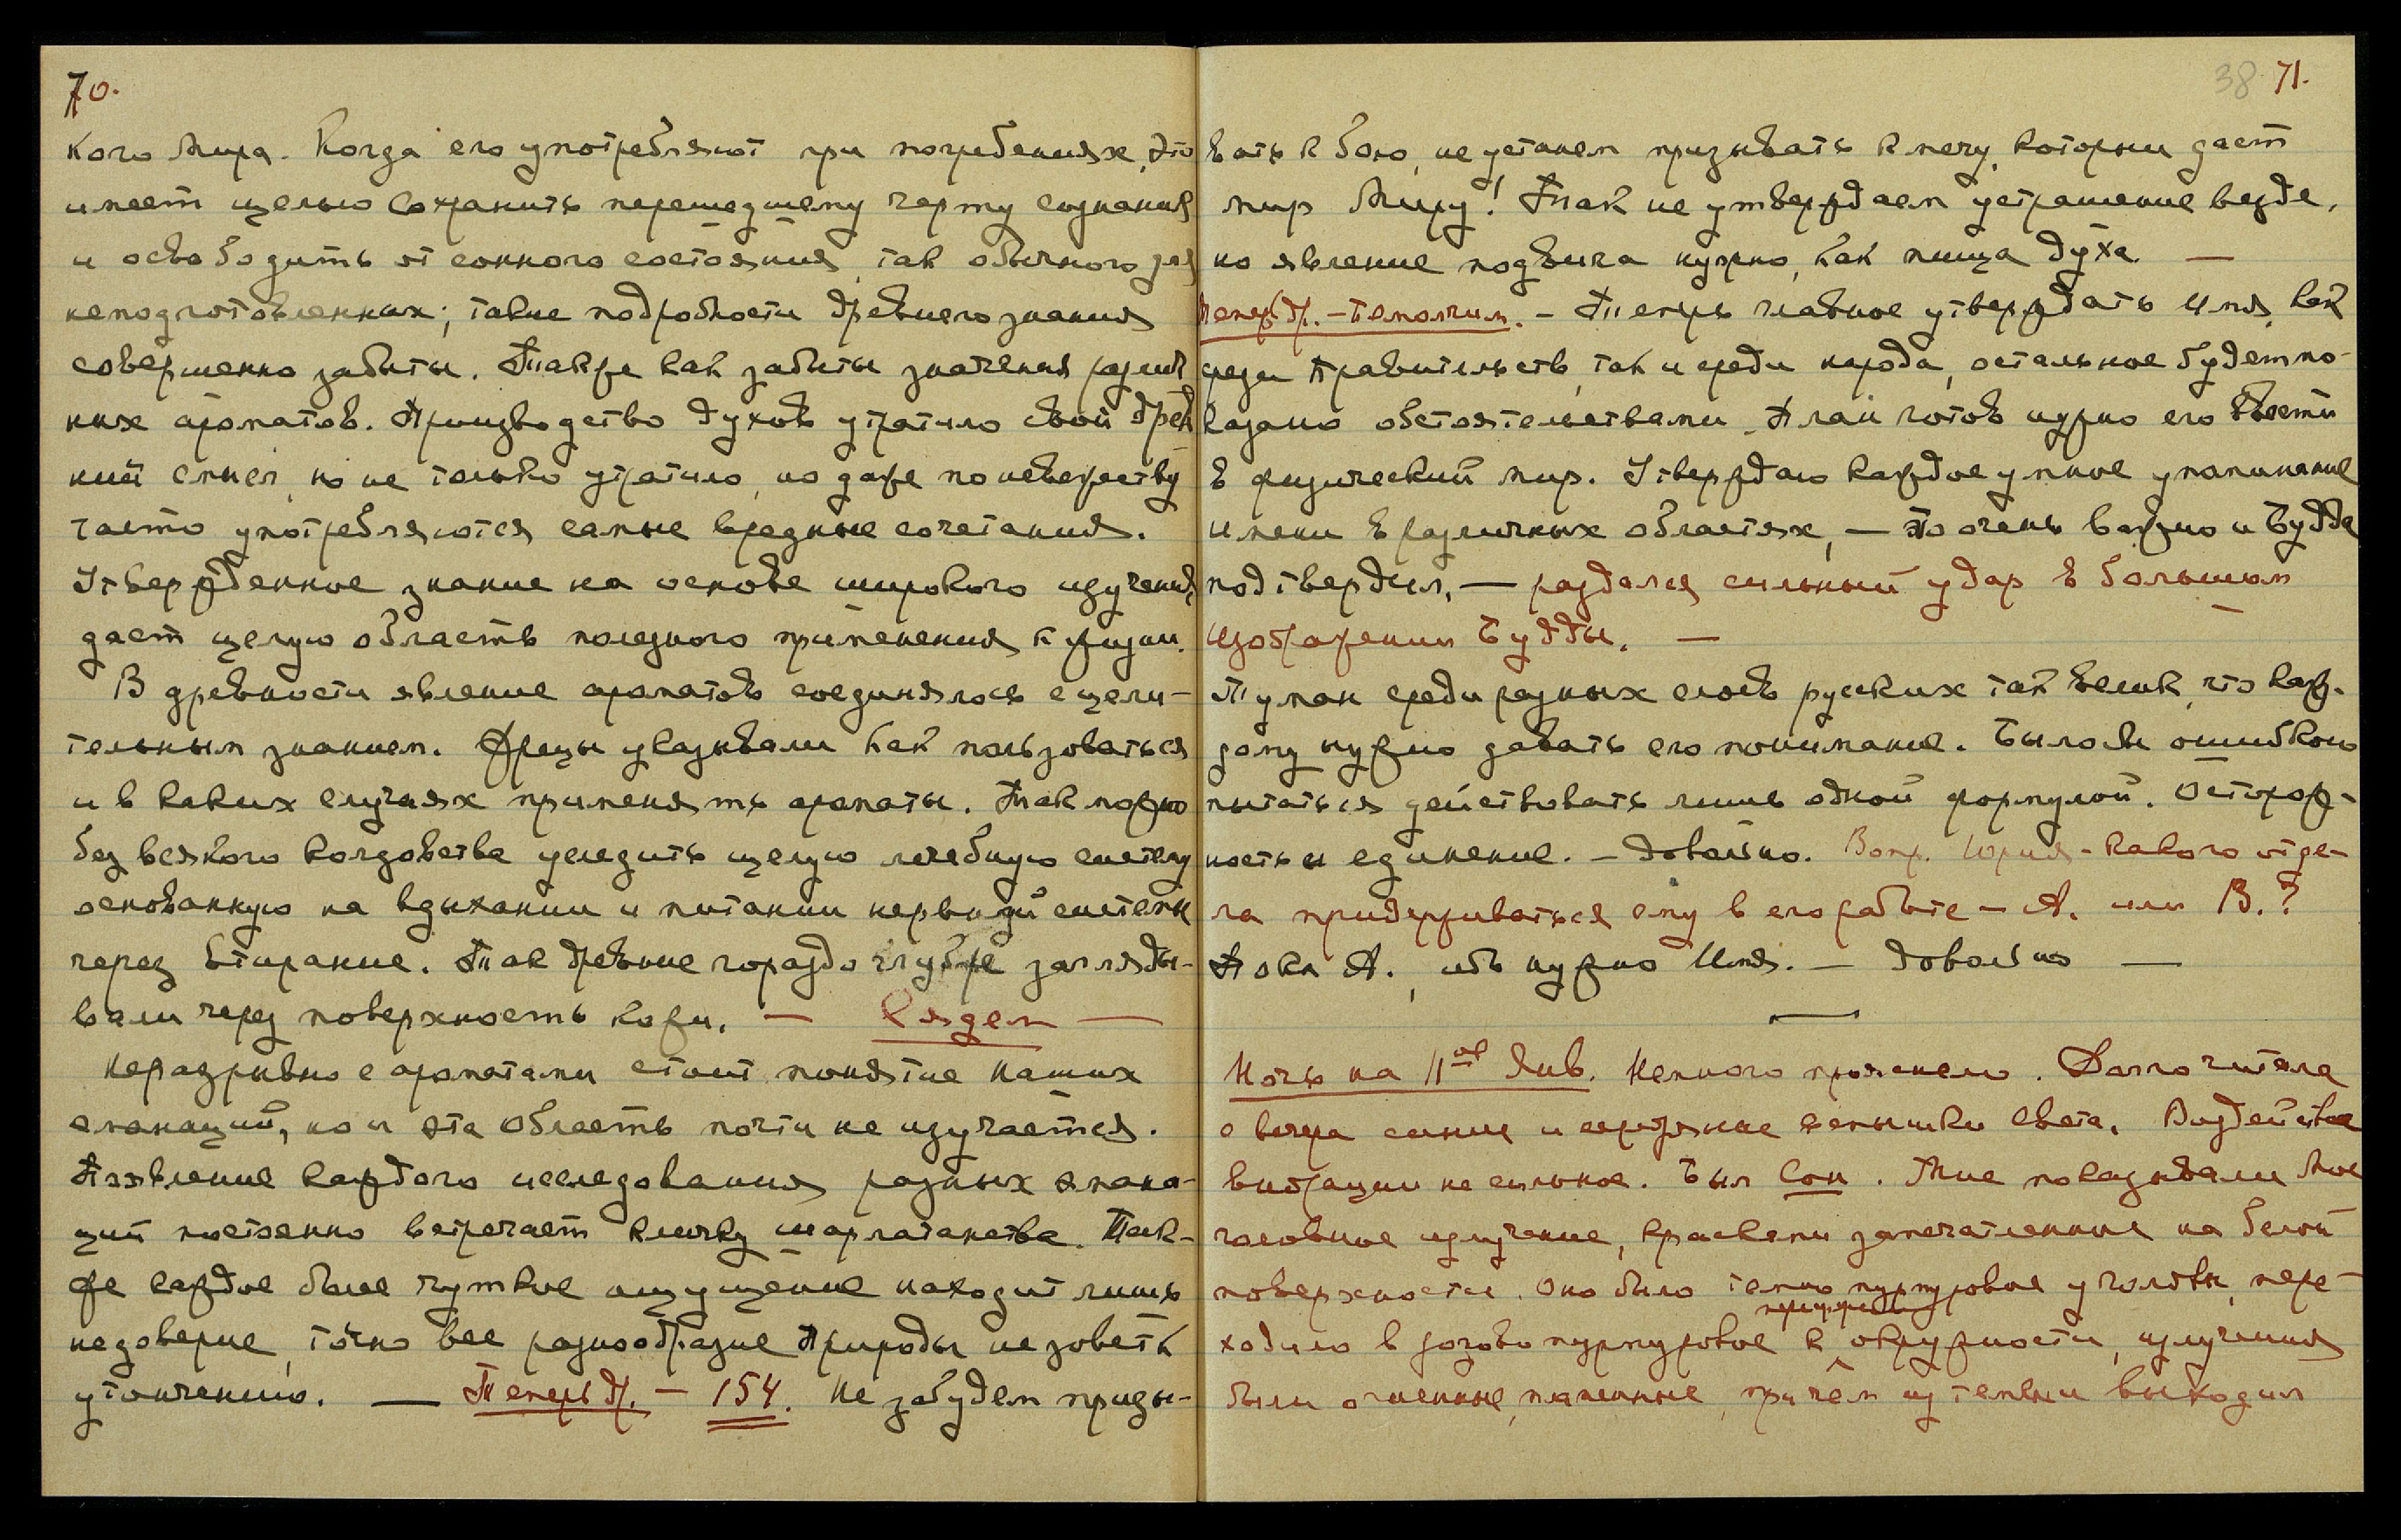 70.
кого Мира. Когда его употребляют при погребениях, это
имеет целью сохранить перешедшему черту сознания
и освободить от сонного состояния, так обычного для
неподготовленных; такие подробности древнего знания
совершенно забыты. Также как забыты значения различ
ных ароматов. Производство духов утратило свой древ
ний смысл, но не только утратило, но даже по невежеству
часто употребляются самые вредные сочетания.
Утвержденное знание на основе широкого изучения,
дает целую область полезного применения к жизни.
В древности явление ароматов соединялось с цели-
тельным знанием. Жрецы указывали как пользоваться
и в каких случаях применять ароматы. Так можно
без всякого колдовства уследить целую лечебную систему
основанную на вдыхании и питании нервной системы
через втирание. Так древние гораздо глубже загляды-
вали через поверхность кожи. — Рядом —
Неразрывно с ароматами стоит понятие наших
эманаций, но и эта область почти не изучается.
Появление каждого исследования разных эмана-
ций постоянно встречает кличку шарлатанства. Так-
же каждое более чуткое ощущение находит лишь
недоверие, точно все разнообразие Природы не зовет к
утончению. — Теперь др. — 154. Не забудем призы-
38 71.
вать к бою, не устанем призывать к мечу, который дает
мир Миру! Так не утверждаем устрашение везде,
но явление подвига нужно, как пища духа —
Теперь др. — Запомним. — Теперь главное утверждать Имя, как
среди Правительств, так и среди народа, остальное будет по-
казано обстоятельствами. План готов нужно его ввести
в физический мир. Утверждаю каждое умное упоминание
имени в различных областях, — это очень важно и Будда
подтвердил, — раздался сильный удар в большом
изображении Будды. —
Туман среди разных слоев русских так велик, что каж-
дому нужно давать его понимание. Было бы ошибкою
пытаться действовать лишь одной формулой. Осторож-
ность и единение. — Довольно. Вопр. Юрия — какого отде-
ла придерживаться ему в его работе — А. или В.?
Пока А., ибо нужно Имя. — Довольно —
Ночь на 11ое Янв. Немного прояснело. Долго читала
с вечера синие и серебряные вспышки света. Воздействие
вибрации не сильное. Был Сон. Мне показывали Мое
головное излучение, красками запечатленное на белой
поверхности. Оно было темно пурпуровое у головы, пере-
ходило в розово пурпуровое к окружности, излучения
были огненные, пламенные, причем из темени выходил